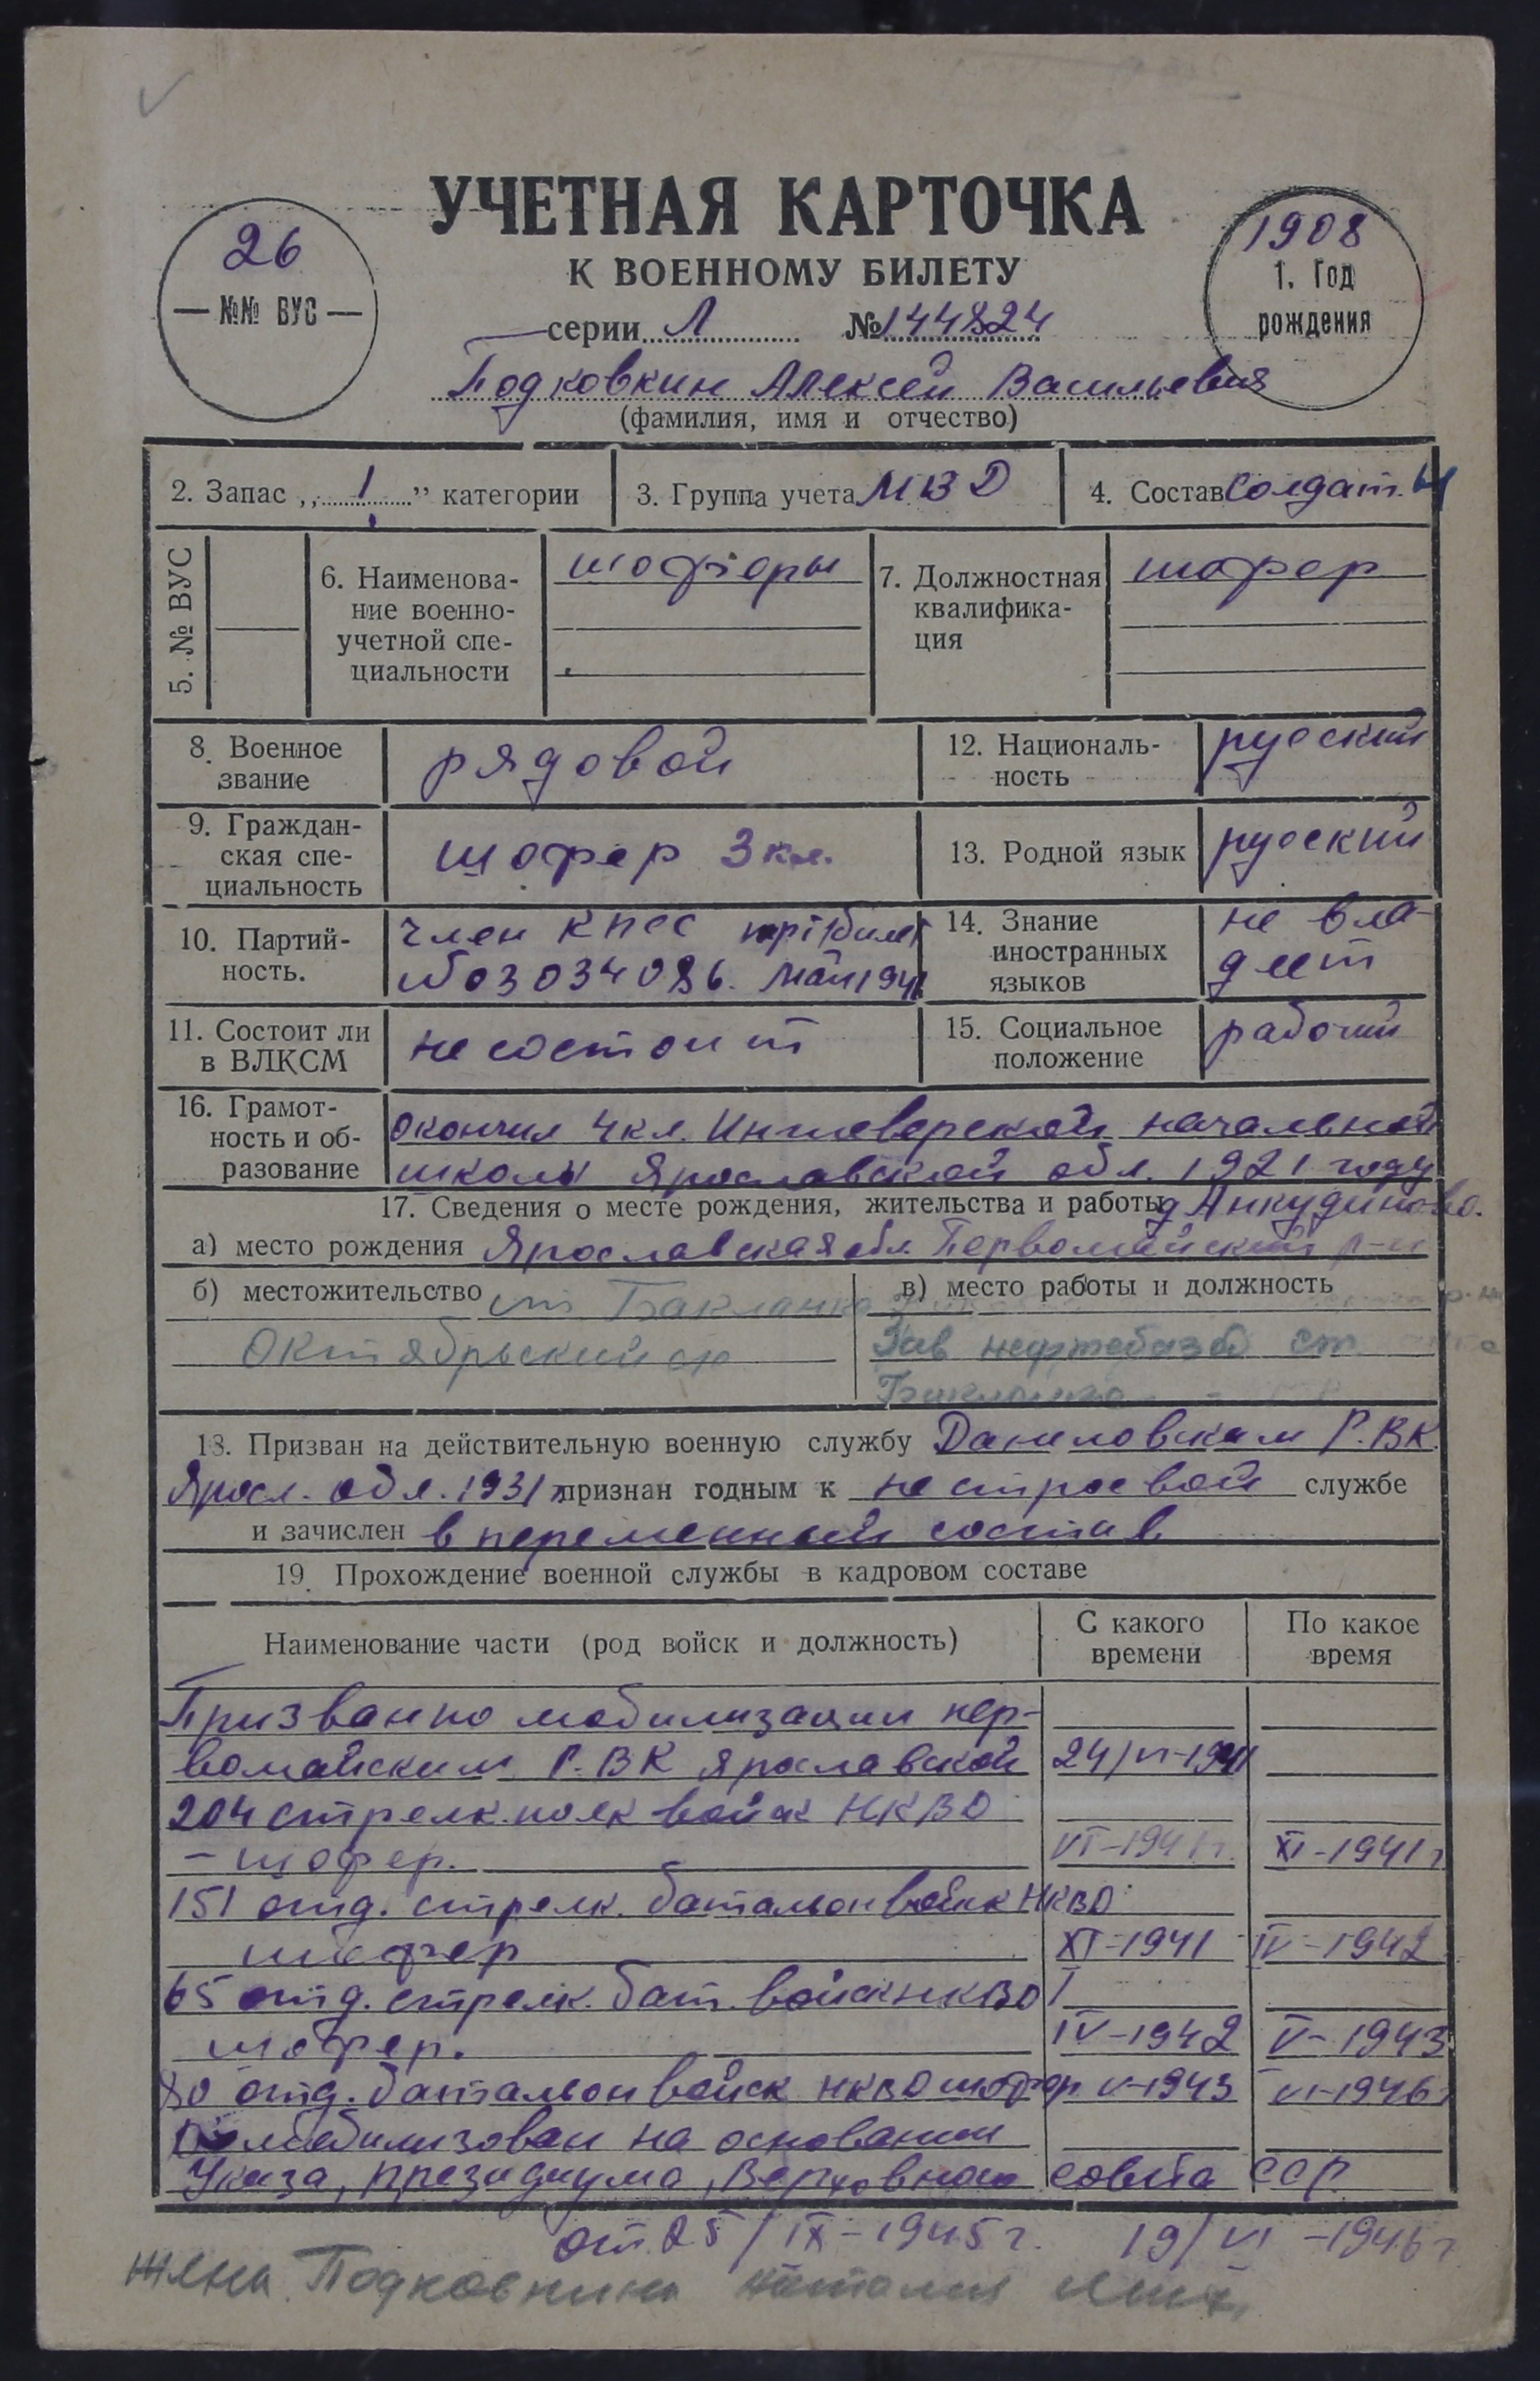 УЧЕТНАЯ КАРТОЧКА
К ВОЕННОМУ БИЛЕТУ
26
— №№ ВУС —
1908
1. Год
рождения
серии Л № 144824
Подковкин Алексей Васильевич
(фамилия, имя и отчество)
2. Запас „ 1 ” категории
3. Группа учета МВД
4. Состав Солдат.
5. № ВУС
6. Наименова-
ние военно-
учетной спе-
циальности
шоферы
7. Должностная
квалифика-
ция
шофер
8. Военное
звание
рядовой
12. Националь-
ность
русский
9. Граждан-
ская спе-
циальность
шофер 3 кл.
13. Родной язык
русский
10. Партий-
ность.
член КПСС билет
№ 03034086. май
14. Знание
иностранных
языков
не вла-
деет
11. Состоит ли
в ВЛКСМ
не состоит
15. Социальное
положение
рабочий
16. Грамот-
ность и об-
разование
окончил 4 кл. начальной
школы Ярославской обл. 1921 году
17. Сведения о месте рождения, жительства и работы д Анкудиново.
а) место рождения Ярославская обл. Первомайский р-н
б) местожительство ст Бакланка
Октябрьский
в) место работы и должность
Зав нефтебазой ст
Бакланка
18. Призван на действительную военную службу Даниловским Р.ВК.
Яросл. обл. 1931 г признан годным к нестроевой службе
и зачислен в переменный состав
19. Прохождение военной службы в кадровом составе
Наименование части (род войск и должность)
С какого
времени
По какое
время
Призван по мобилизации пер-
вомайским Р.ВК Ярославской 24/VI-1941
204 стрелк. полк войск НКВД
– шофер. VI-1941 г. XI-1941 г
151 отд. стрелк. батальон войск НКВД
шофер XI-1941 IV-1942
65 отд. стрелк. бат. войск НКВД
шофер. IV-1942 V-1943
80 отд. батальон войск НКВД шофер V-1943 VI-1946 г
Демобилизован на основании
Указа, президиума, Верховного совета ССР
от 25/IX-1945 г. 19/VI-1946 г
Жена Подковкина Наталия